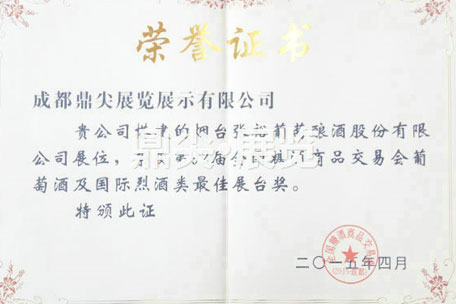 荣誉证书
成都鼎尖展览展示有限公司
贵公司搭建的烟台张裕葡萄酿酒股份有限
公司展位，届全国糖酒商品交易会葡
萄酒及国际烈酒类最佳展台奖。
特颁此证
鼎尖·展览
二〇一五年四月